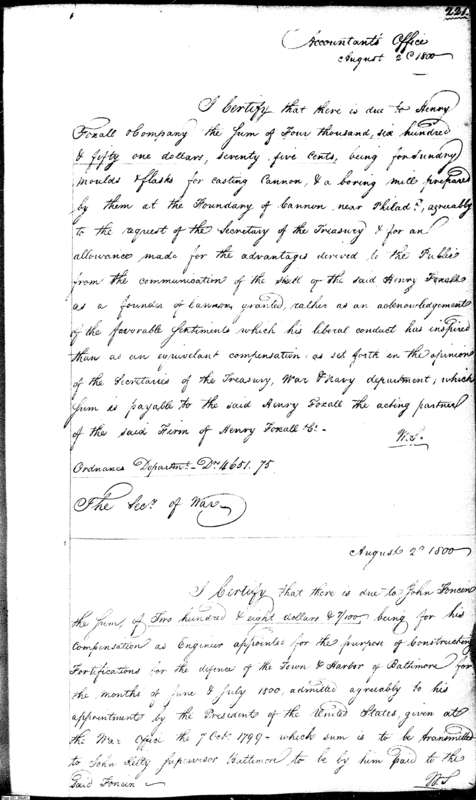 221
Accountants Office
August 2d 1800
I Certify that there is due to Henry
Foxall & Company the Sum of Four thousand, six hundred
& fifty one dollars, seventy five Cents, being for sundry
moulds & flasks for casting Cannon, & a boring mill prepared
by them at the Foundary of Cannon, near Philada, agreeably
to the request of the Secretary of the Treasury & for an
allowance made for the advantages derived to the Public
from the communication of the skill of the said Henry Foxall
as a founder of Cannon, granted, rather as an acknowledgement
of the favorable Sentiments which his liberal conduct has inspired
than as an equivelant compensation as set forth in the opinions
of the Secretaries of the Treasury, War & Navy department; which
Sum is payable to the said Henry Foxall the acting partner
of the said Firm of Henry Foxall & Co -
W.S.
Ordnance Departmt - Drs 4651.75
The Secy of War
August 2d 1800
I Certify that there is due to John Foncin
the Sum, of Two hundred & eight dollars & 7/100 being for his
Compensation as Engineer appointed for the purpose of Constructing
Fortifications for the defence of the Town & Harbor of Baltimore for
the months of June & July 1800, admitted agreably to his
appointment by the President of the United States, given at
the War Office the 7 Octr 1799 - which sum is to be transmitted
to John Kilty Supervisor Baltimore to be by him paid to the
Said Foncin
W.S